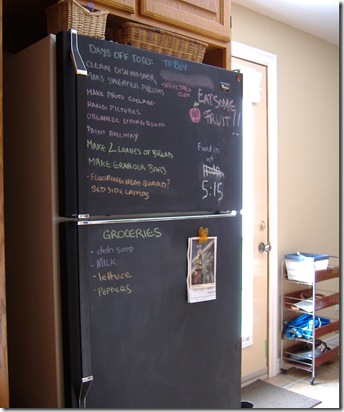 DAYS OFF TO DO:
CLEAN DISHWASHER
MAKE SWEATER PILLOWS
MAKE PHOTO COLLAGE
HANG PICTURES
ORGANIZE LIVING ROOM
PAINT HALLWAY
MAKE 2 LOAVES OF BREAD
MAKE GRANOLA BARS
- FLOORING HEAD BOARD?
BED SIDE LAMPS
TO BUY
- VEGETABLE
EAT SOME
FRUIT!!
Food in
at
5:15
GROCERIES
- dish soap
- MILK
- lettuce
- PEPPERS